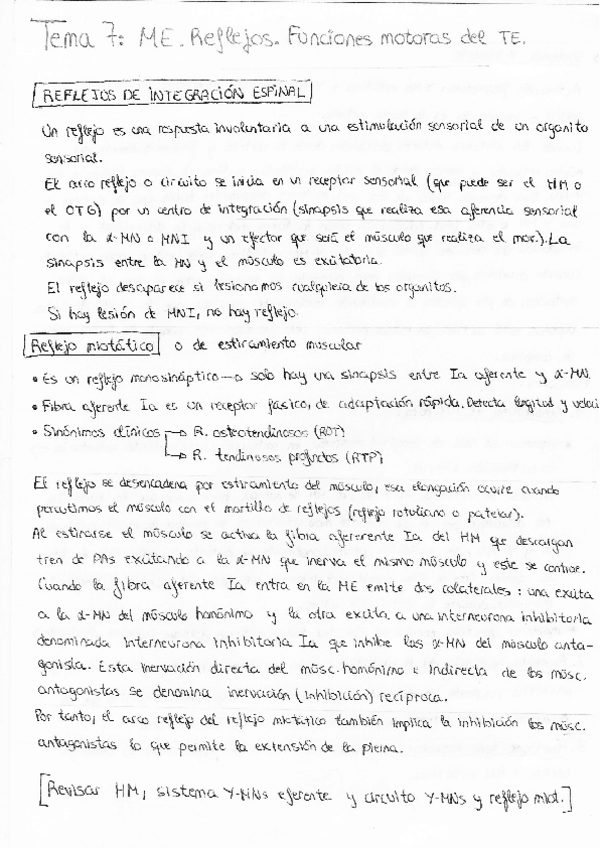 Tema 7: ME. Reflejos. Funciones motoras del TE.
REFLEJOS DE INTEGRACIÓN ESPINAL
Un reflejo es una respuesta involuntaria a una estimulación sensorial de un organito
sensorial.
El arco reflejo o circuito se inicia en un receptor sensorial (que puede ser el HM o
el OTG) por un centro de integración (sinapsis que realiza esa aferencia sensorial
con la α-MN o MNI y un efector que será el músculo que realiza el mov.). La
sinapsis entre la MN y el músculo es excitatoria.
El reflejo desaparece si lesionamos cualquiera de los organitos.
Si hay lesión de MNI, no hay reflejo.
Reflejo miotático o de estiramiento muscular
• Es un reflejo monosináptico → solo hay una sinapsis entre Ia aferente y α-MN.
• Fibra aferente Ia es un receptor fásico, de adaptación rápida. Detecta longitud y veloci
• Sinónimos clínicos → R. osteotendinosos (ROT)
→ R. tendinosos profundos (RTP)
El reflejo se desencadena por estiramiento del músculo, esa elongación ocurre cuando
percutimos el músculo con el martillo de reflejos (reflejo rotuliano o patelar).
Al estirarse el músculo se activa la fibra aferente Ia del HM que descargan
tren de PAs excitando a la α-MN que inerva el mismo músculo y este se contrae.
Cuando la fibra aferente Ia entra en la ME emite dos colaterales: una excita
a la α-MN del músculo homónimo y la otra excita a una interneurona inhibitoria
denominada Interneurona Inhibitoria Ia que inhibe las α-MN del músculo anta-
gonista. Esta inervación directa del músc. homónimo e indirecta de los músc.
antagonistas se denomina inervación (inhibición) recíproca.
Por tanto, el arco reflejo del reflejo miotático también implica la inhibición los músc.
antagonistas lo que permite la extensión de la pierna.
[Revisar HM, sistema γ-MNs eferente y circuito γ-MNs y reflejo miot.]